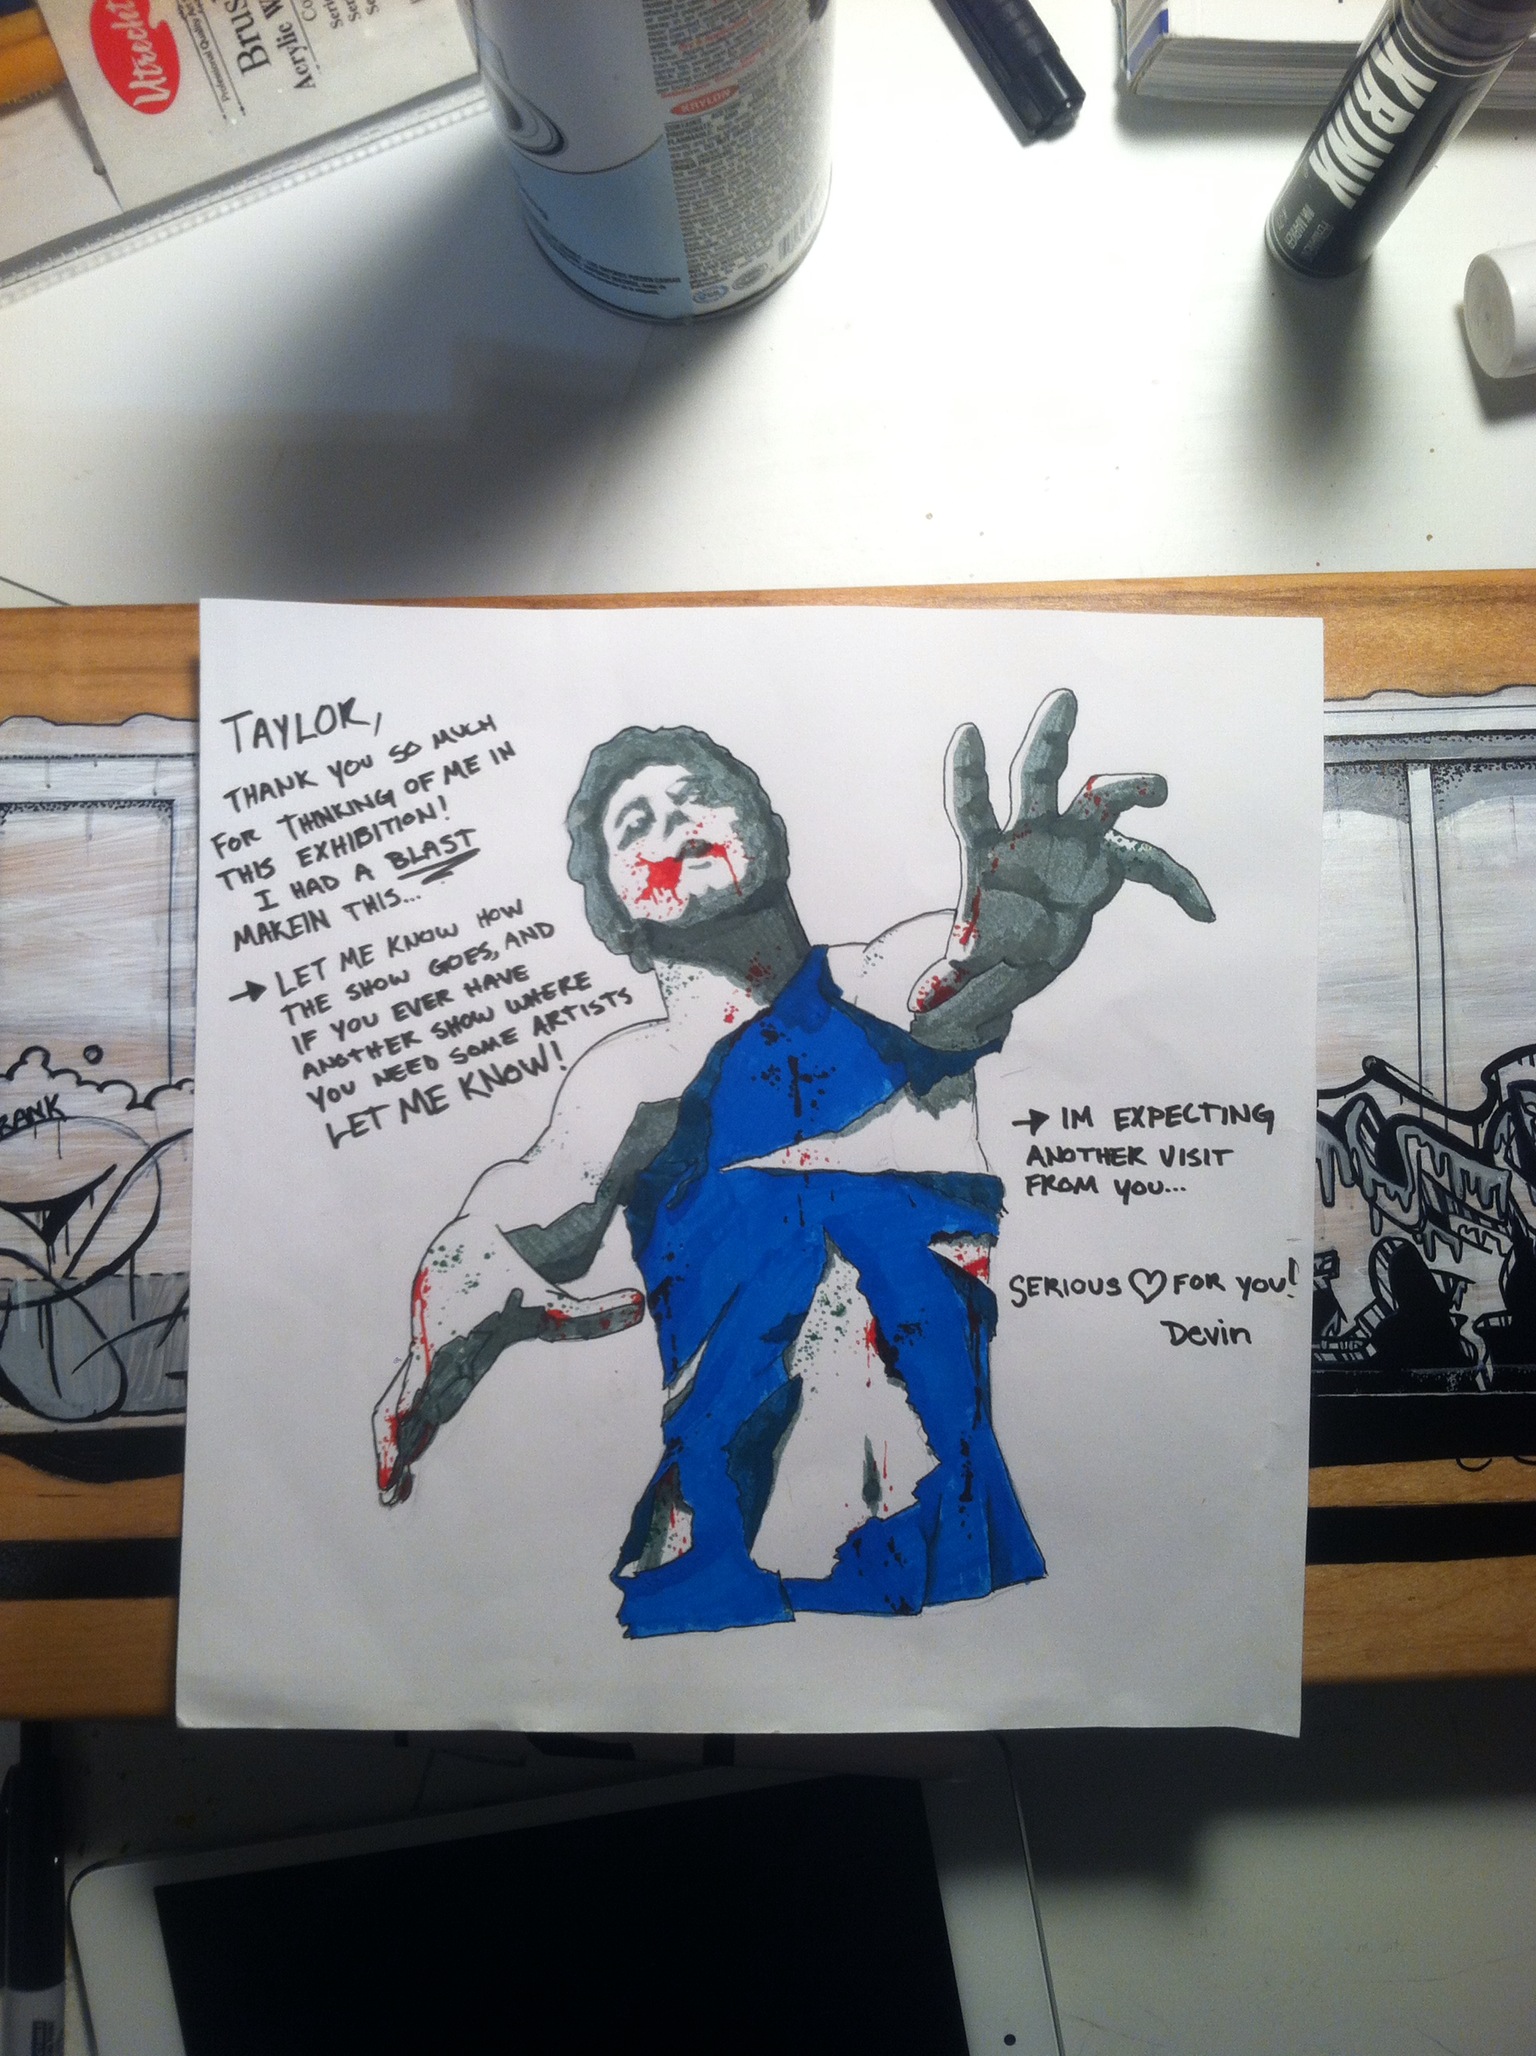 Utrecht
Professional Quality
Brus
Acrylic W
KRYLON
KRINK
TAYLOR,
THANK YOU SO MUCH
FOR THINKING OF ME IN
THIS EXHIBITION!
I HAD A BLAST
MAKEIN THIS...
→ LET ME KNOW HOW
THE SHOW GOES, AND
IF YOU EVER HAVE
ANOTHER SHOW WHERE
YOU NEED SOME ARTISTS
LET ME KNOW!
→ IM EXPECTING
ANOTHER VISIT
FROM YOU...
SERIOUS ♡ FOR YOU!
Devin